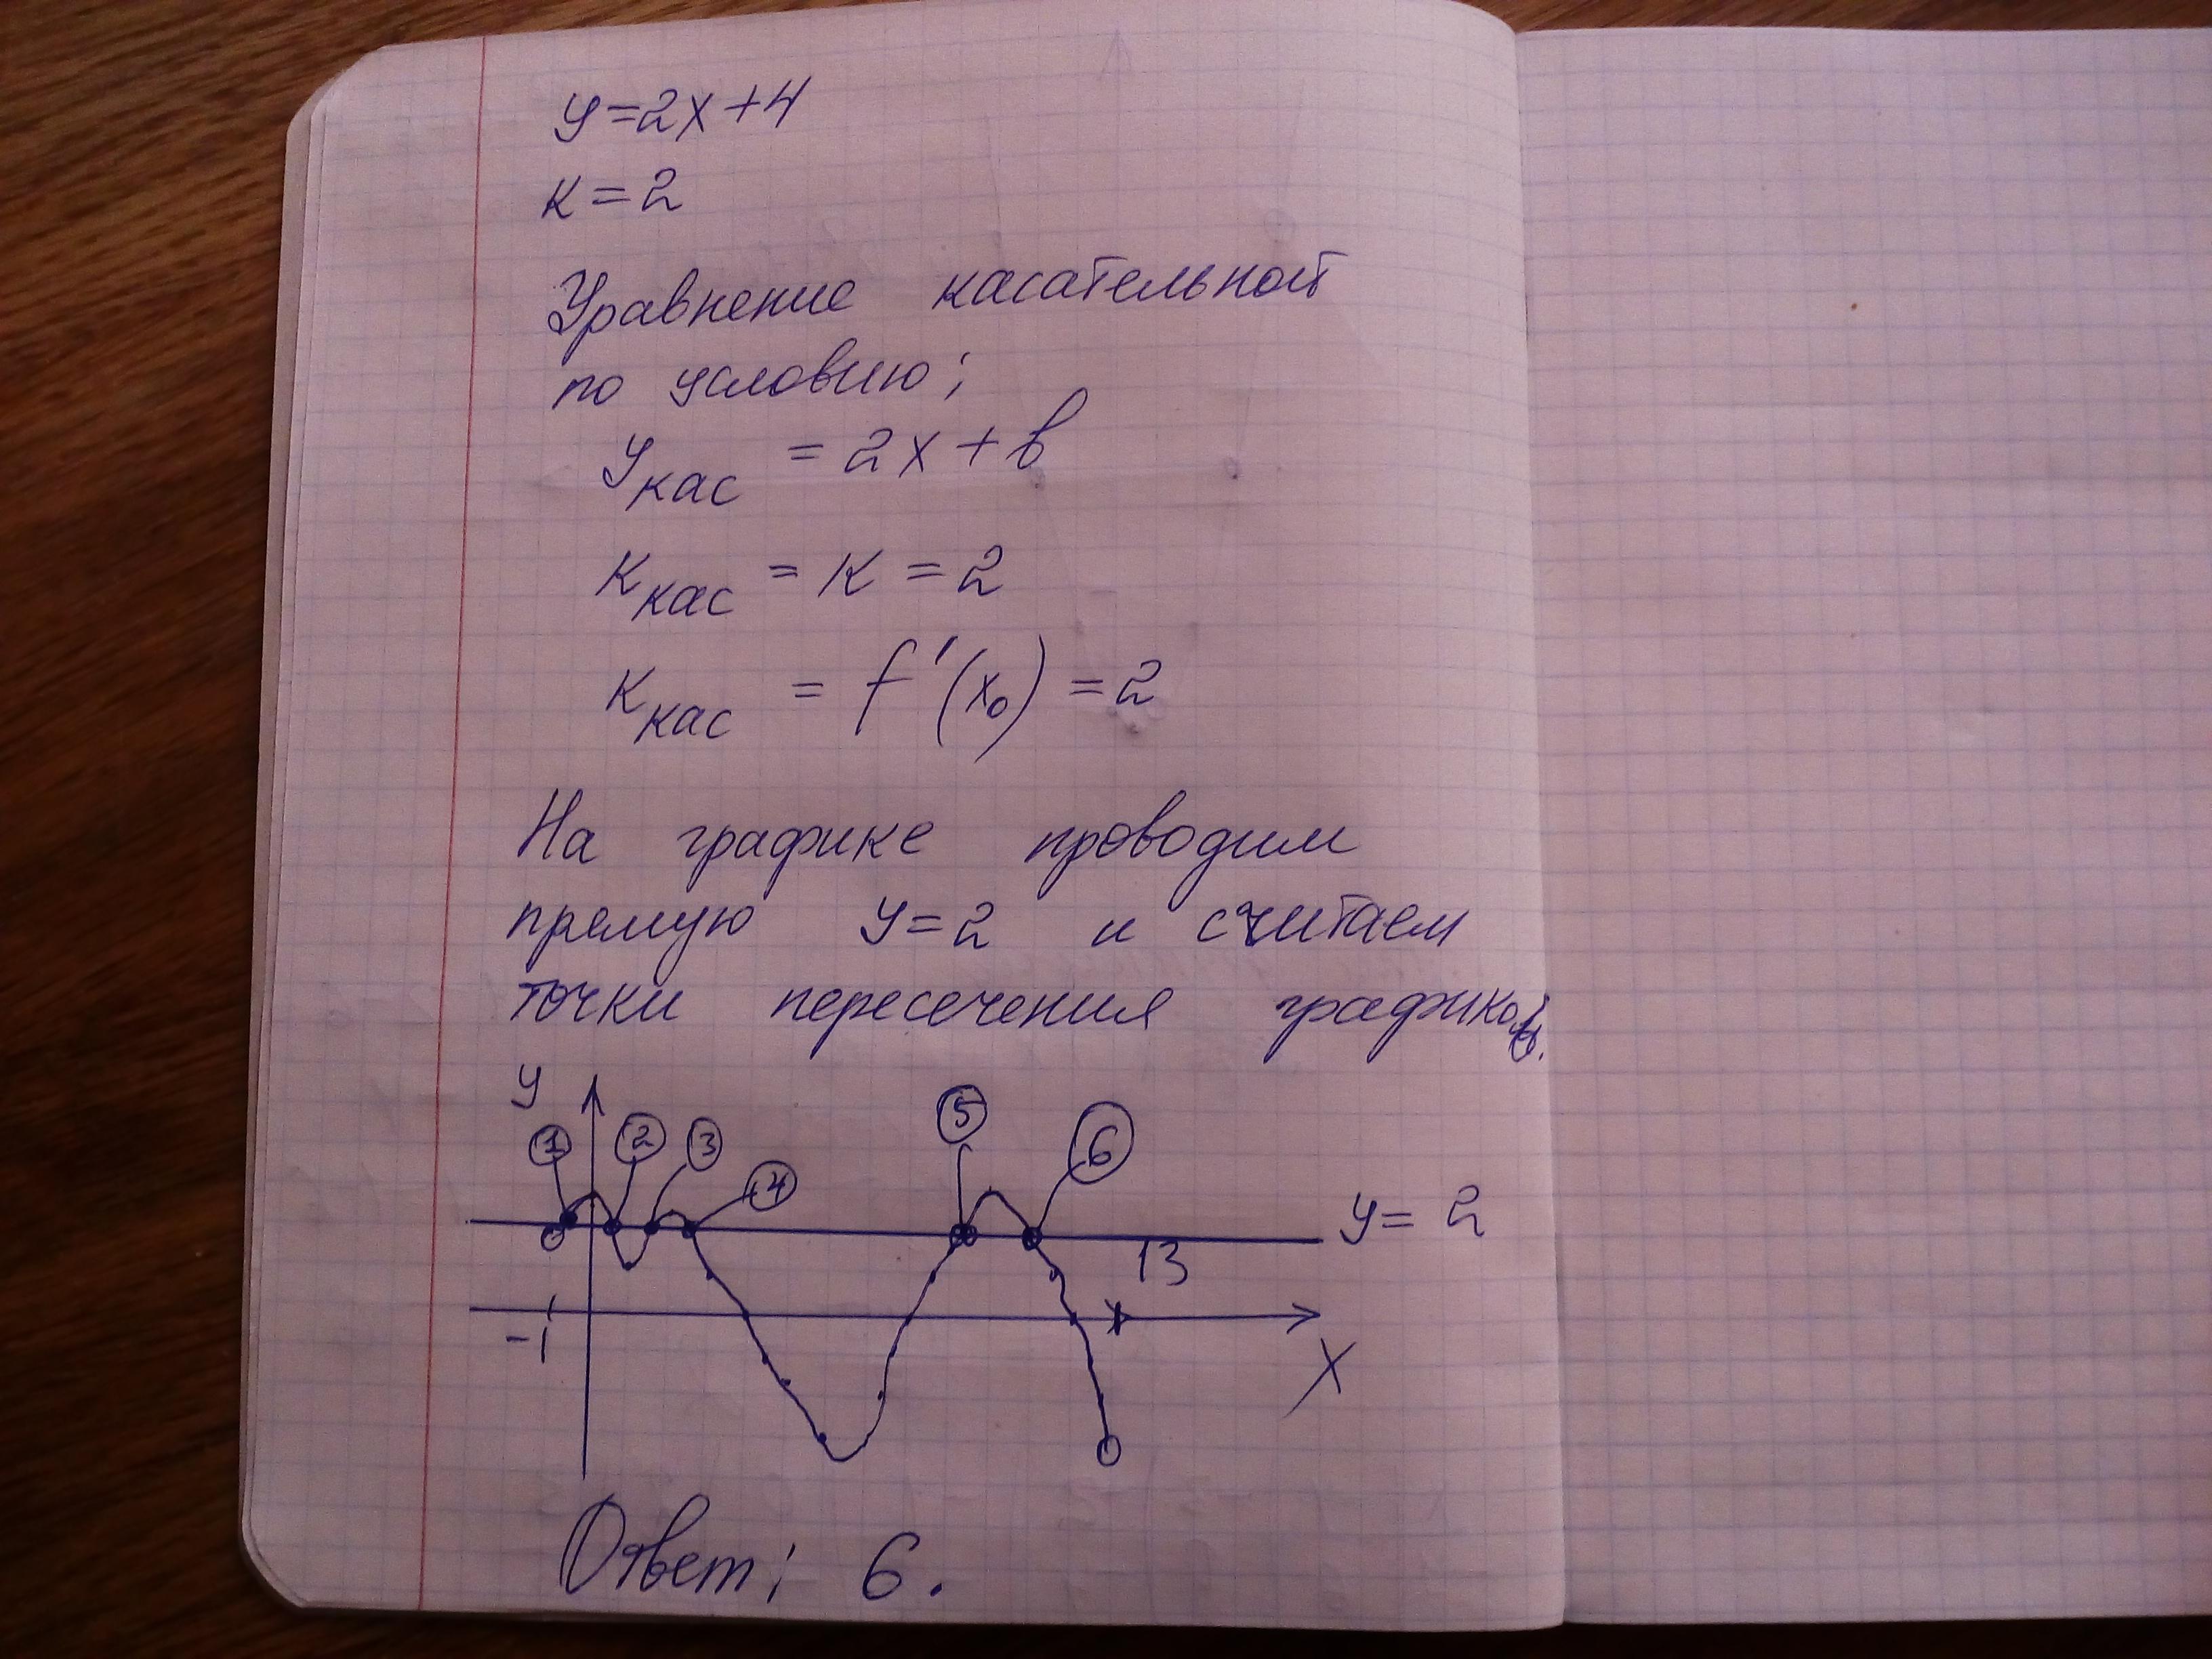 y=2x+4
к=2
Уравнение касательной
по условию;
y кас = 2x+b
к кас = к = 2
к кас = f'(x₀) = 2
На графике проводим
прямую y=2 и считаем
точки пересечения графиков.
y
1 2 3 4 5 6
y= 2
13
-1
x
Ответ; 6.